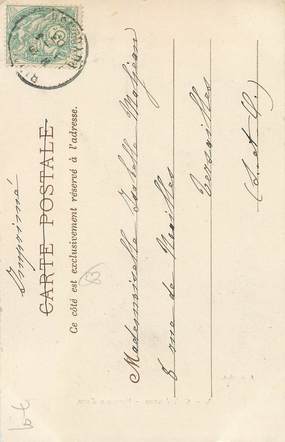 Imprimé
CARTE POSTALE
Ce côté est exclusivement réservé à l'adresse.
Mademoiselle Isabelle
8 rue de Noailles
Versailles
(S. et O.)
83